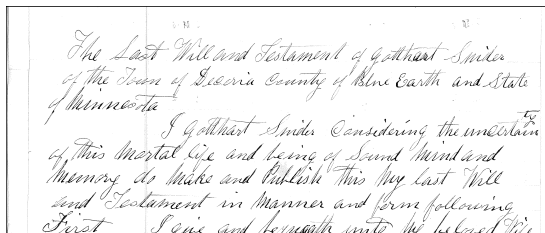 The Last Will and Testament of Gotthart Snider
of the Town of Decoria County of Blue Earth and State
of Minnesota
I Gotthart Snider Considering the uncertainty
of this mortal life and being of Sound Mind and
Memory do Make and Publish this My last Will
and Testament in Manner and form following
First I give and bequeath unto My beloved Wife